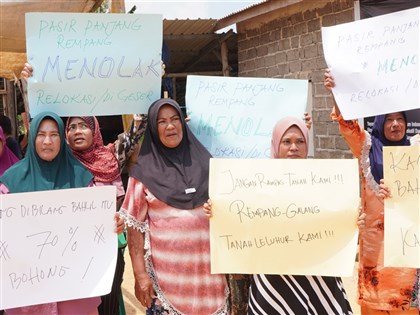 PASIR PANJANG
REMPANG
MENOLAK
RELOKASI/DI GESER
PASIR PANJANG
REMPANG
MENOLA
RELOKASI/DI G
PASIR PANJANG
REMPANG
MENOLAK
RELOKASI/DI
DIBILANG BAHLIL MU
* 70% *
BOHONG!
JANGAN RAMPAS TANAH KAMI!!!
REMPANG-GALANG
TANAH LELUHUR KAMI!!!
KA
BA
KA